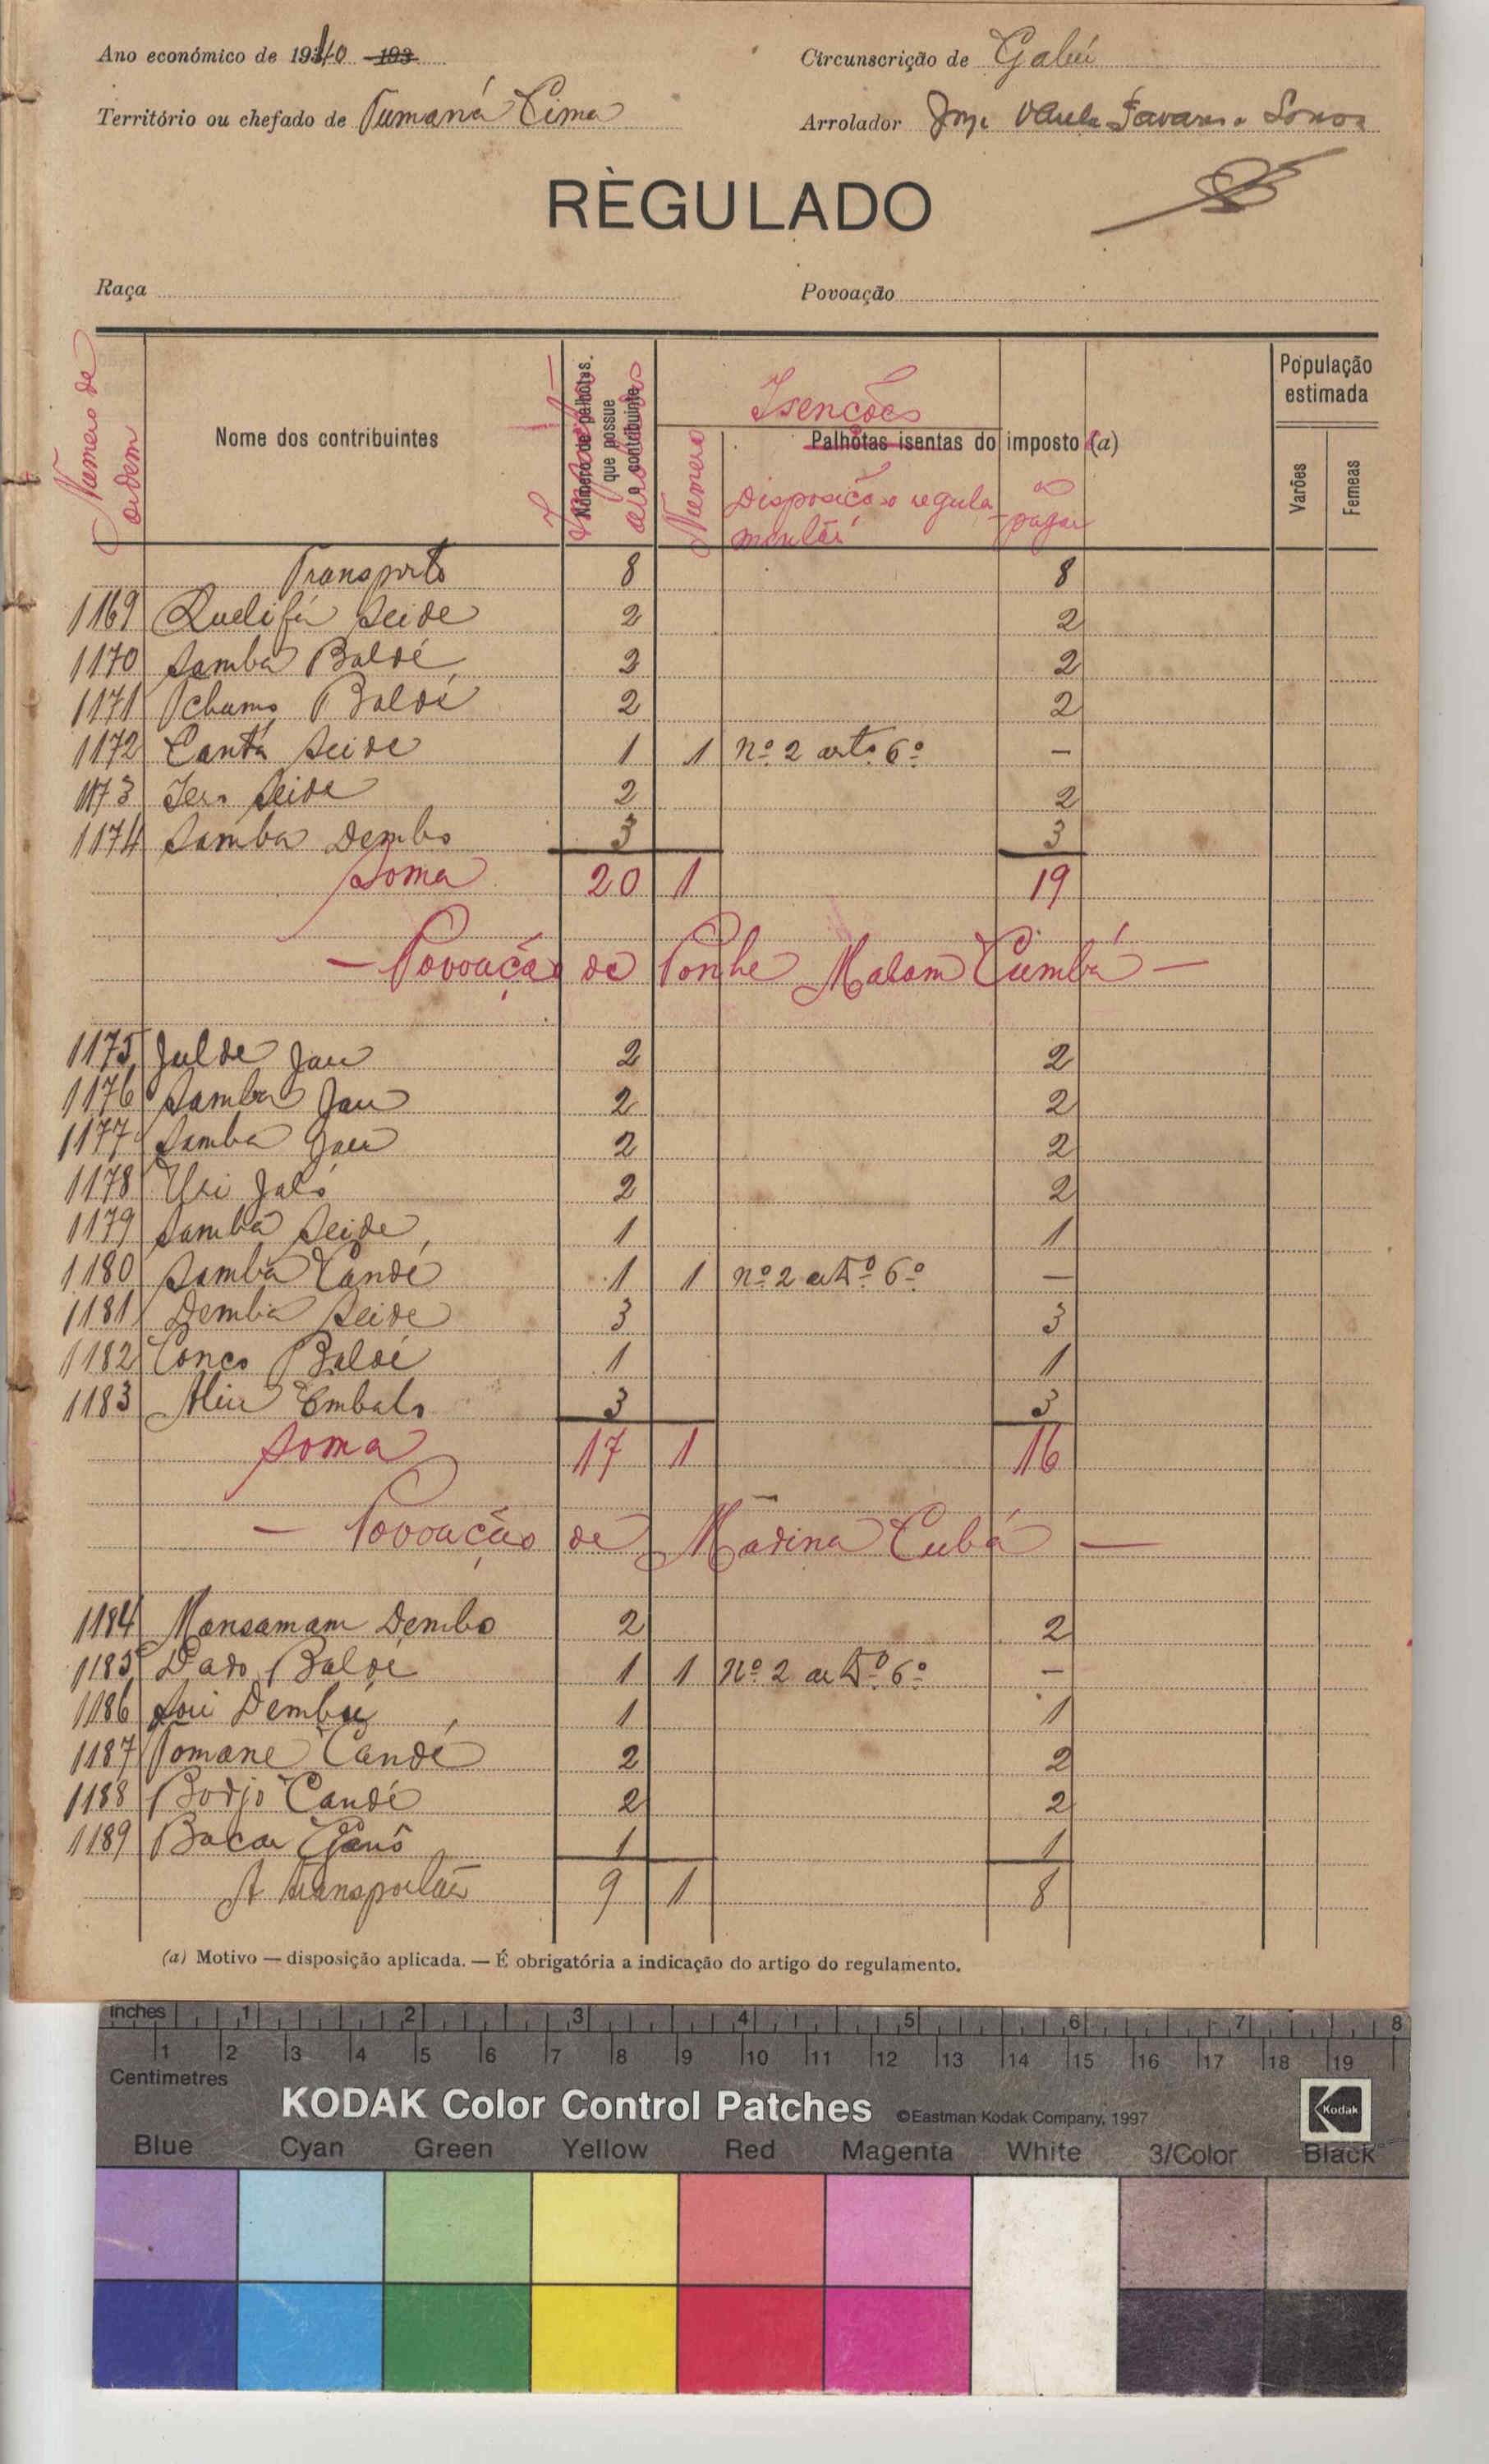 Ano económico de 1940 193
Circunscrição de Gabú
Território ou chefado de Tumaná Cima
Arrolador Tavares
RÈGULADO
Raça
Povoação
Numero de ordem
Nome dos contribuintes
Número de palhotas que possue o contribuinte
Isenções
Palhotas isentas do imposto (a)
Numero
Disposição regulamentar
a pagar
População estimada
Varões
Femeas
Transporte 8 8
1169 Quelifá Seide 2 2
1170 Samba Baldé 2 2
1171 Tchamo Baldé 2 2
1172 Cantá Seide 1 1 nº 2 artº 6º —
1173 Seide 2 2
1174 Samba Dembo 3 3
Soma 20 1 19
— Povoação de Ponhe Malam Cumbá —
1175 Julde Jau 2 2
1176 Samba Jau 2 2
1177 Samba Jau 2 2
1178 Uri Jaló 2 2
1179 Samba Seide 1 1
1180 Samba Candé 1 1 nº 2 artº 6º —
1181 Demba Seide 3 3
1182 Conco Baldé 1 1
1183 Aliu Embalo 3 3
Soma 17 1 16
— Povoação de Madina Cubá —
1184 Mansamam Dembo 2 2
1185 Dado Baldé 1 1 nº 2 artº 6º —
1186 Dembu 1 1
1187 Tomane Candé 2 2
1188 Bodjo Candé 2 2
1189 Bacar Ganô 1 1
A transportar 9 1 8
(a) Motivo — disposição aplicada. — É obrigatória a indicação do artigo do regulamento.
inches 1 2 3 4 5 6 7 8
1 2 3 4 5 6 7 8 9 10 11 12 13 14 15 16 17 18 19
Centimetres
KODAK Color Control Patches ©Eastman Kodak Company, 1997 Kodak
Blue Cyan Green Yellow Red Magenta White 3/Color Black